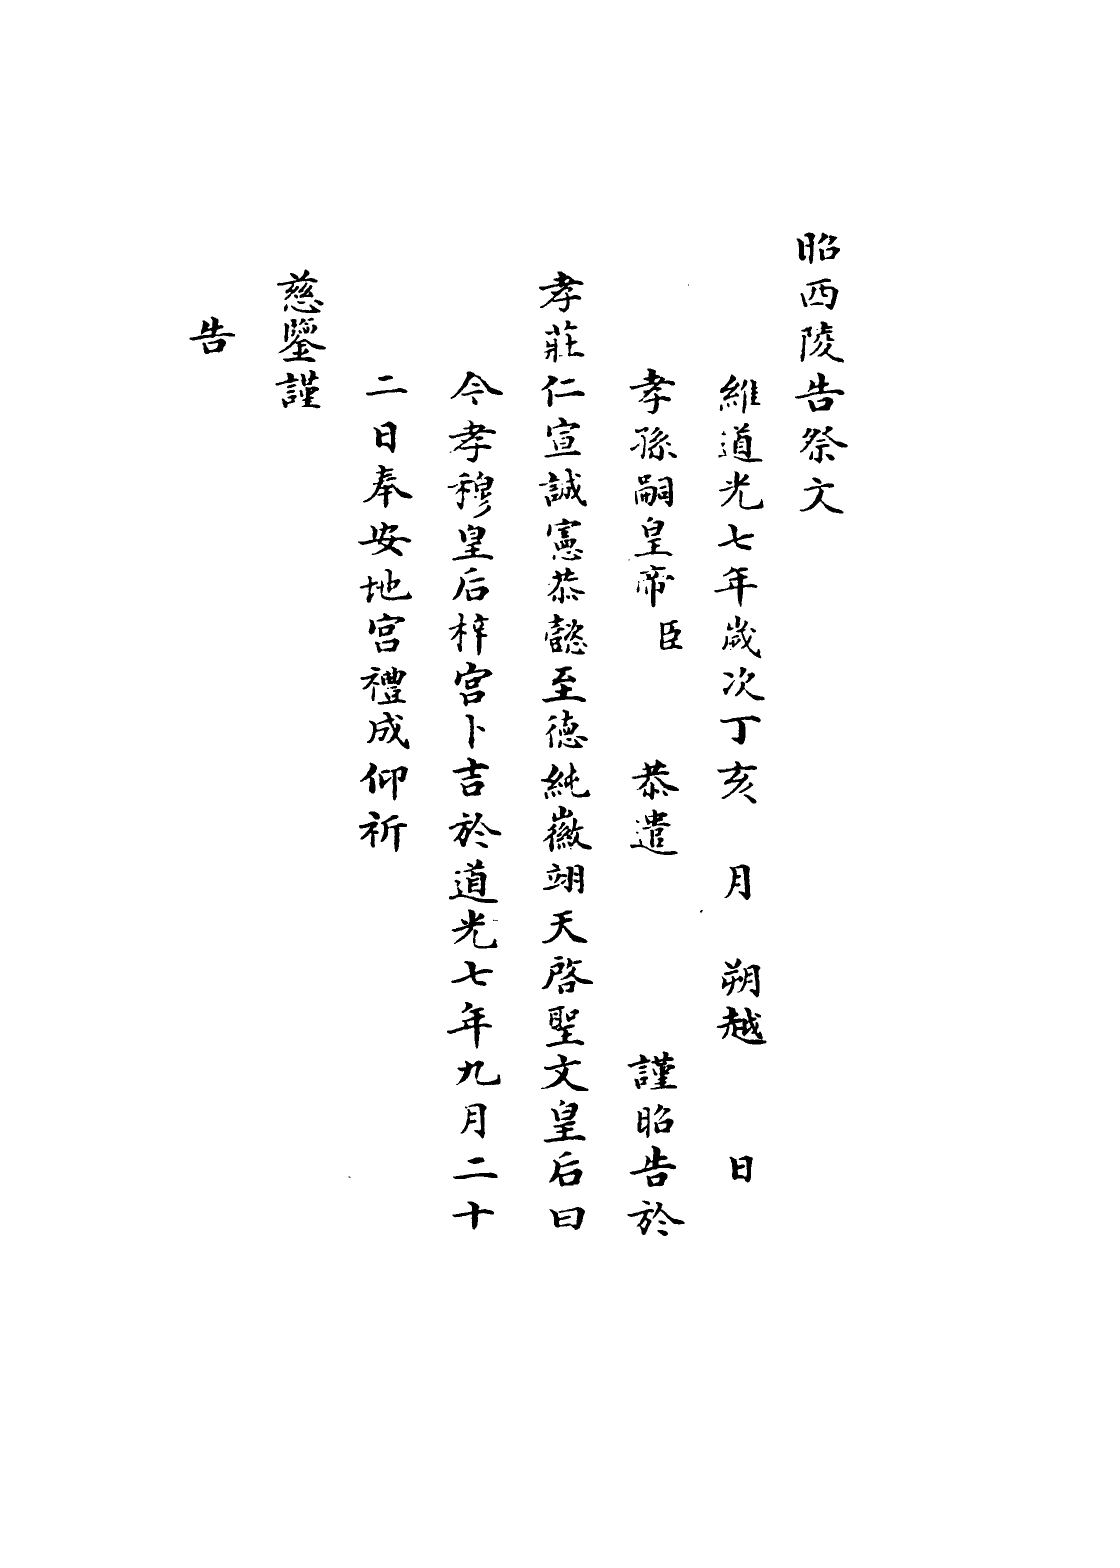 昭西陵告祭文
維道光七年歲次丁亥　月　朔越　　日
孝孫嗣皇帝臣　　恭遣　　　　謹昭告於
孝莊仁宣誠憲恭懿至德純徽翊天啓聖文皇后曰
今孝穆皇后梓宮卜吉於道光七年九月二十
二日奉安地宮禮成仰祈
慈鑒謹
告